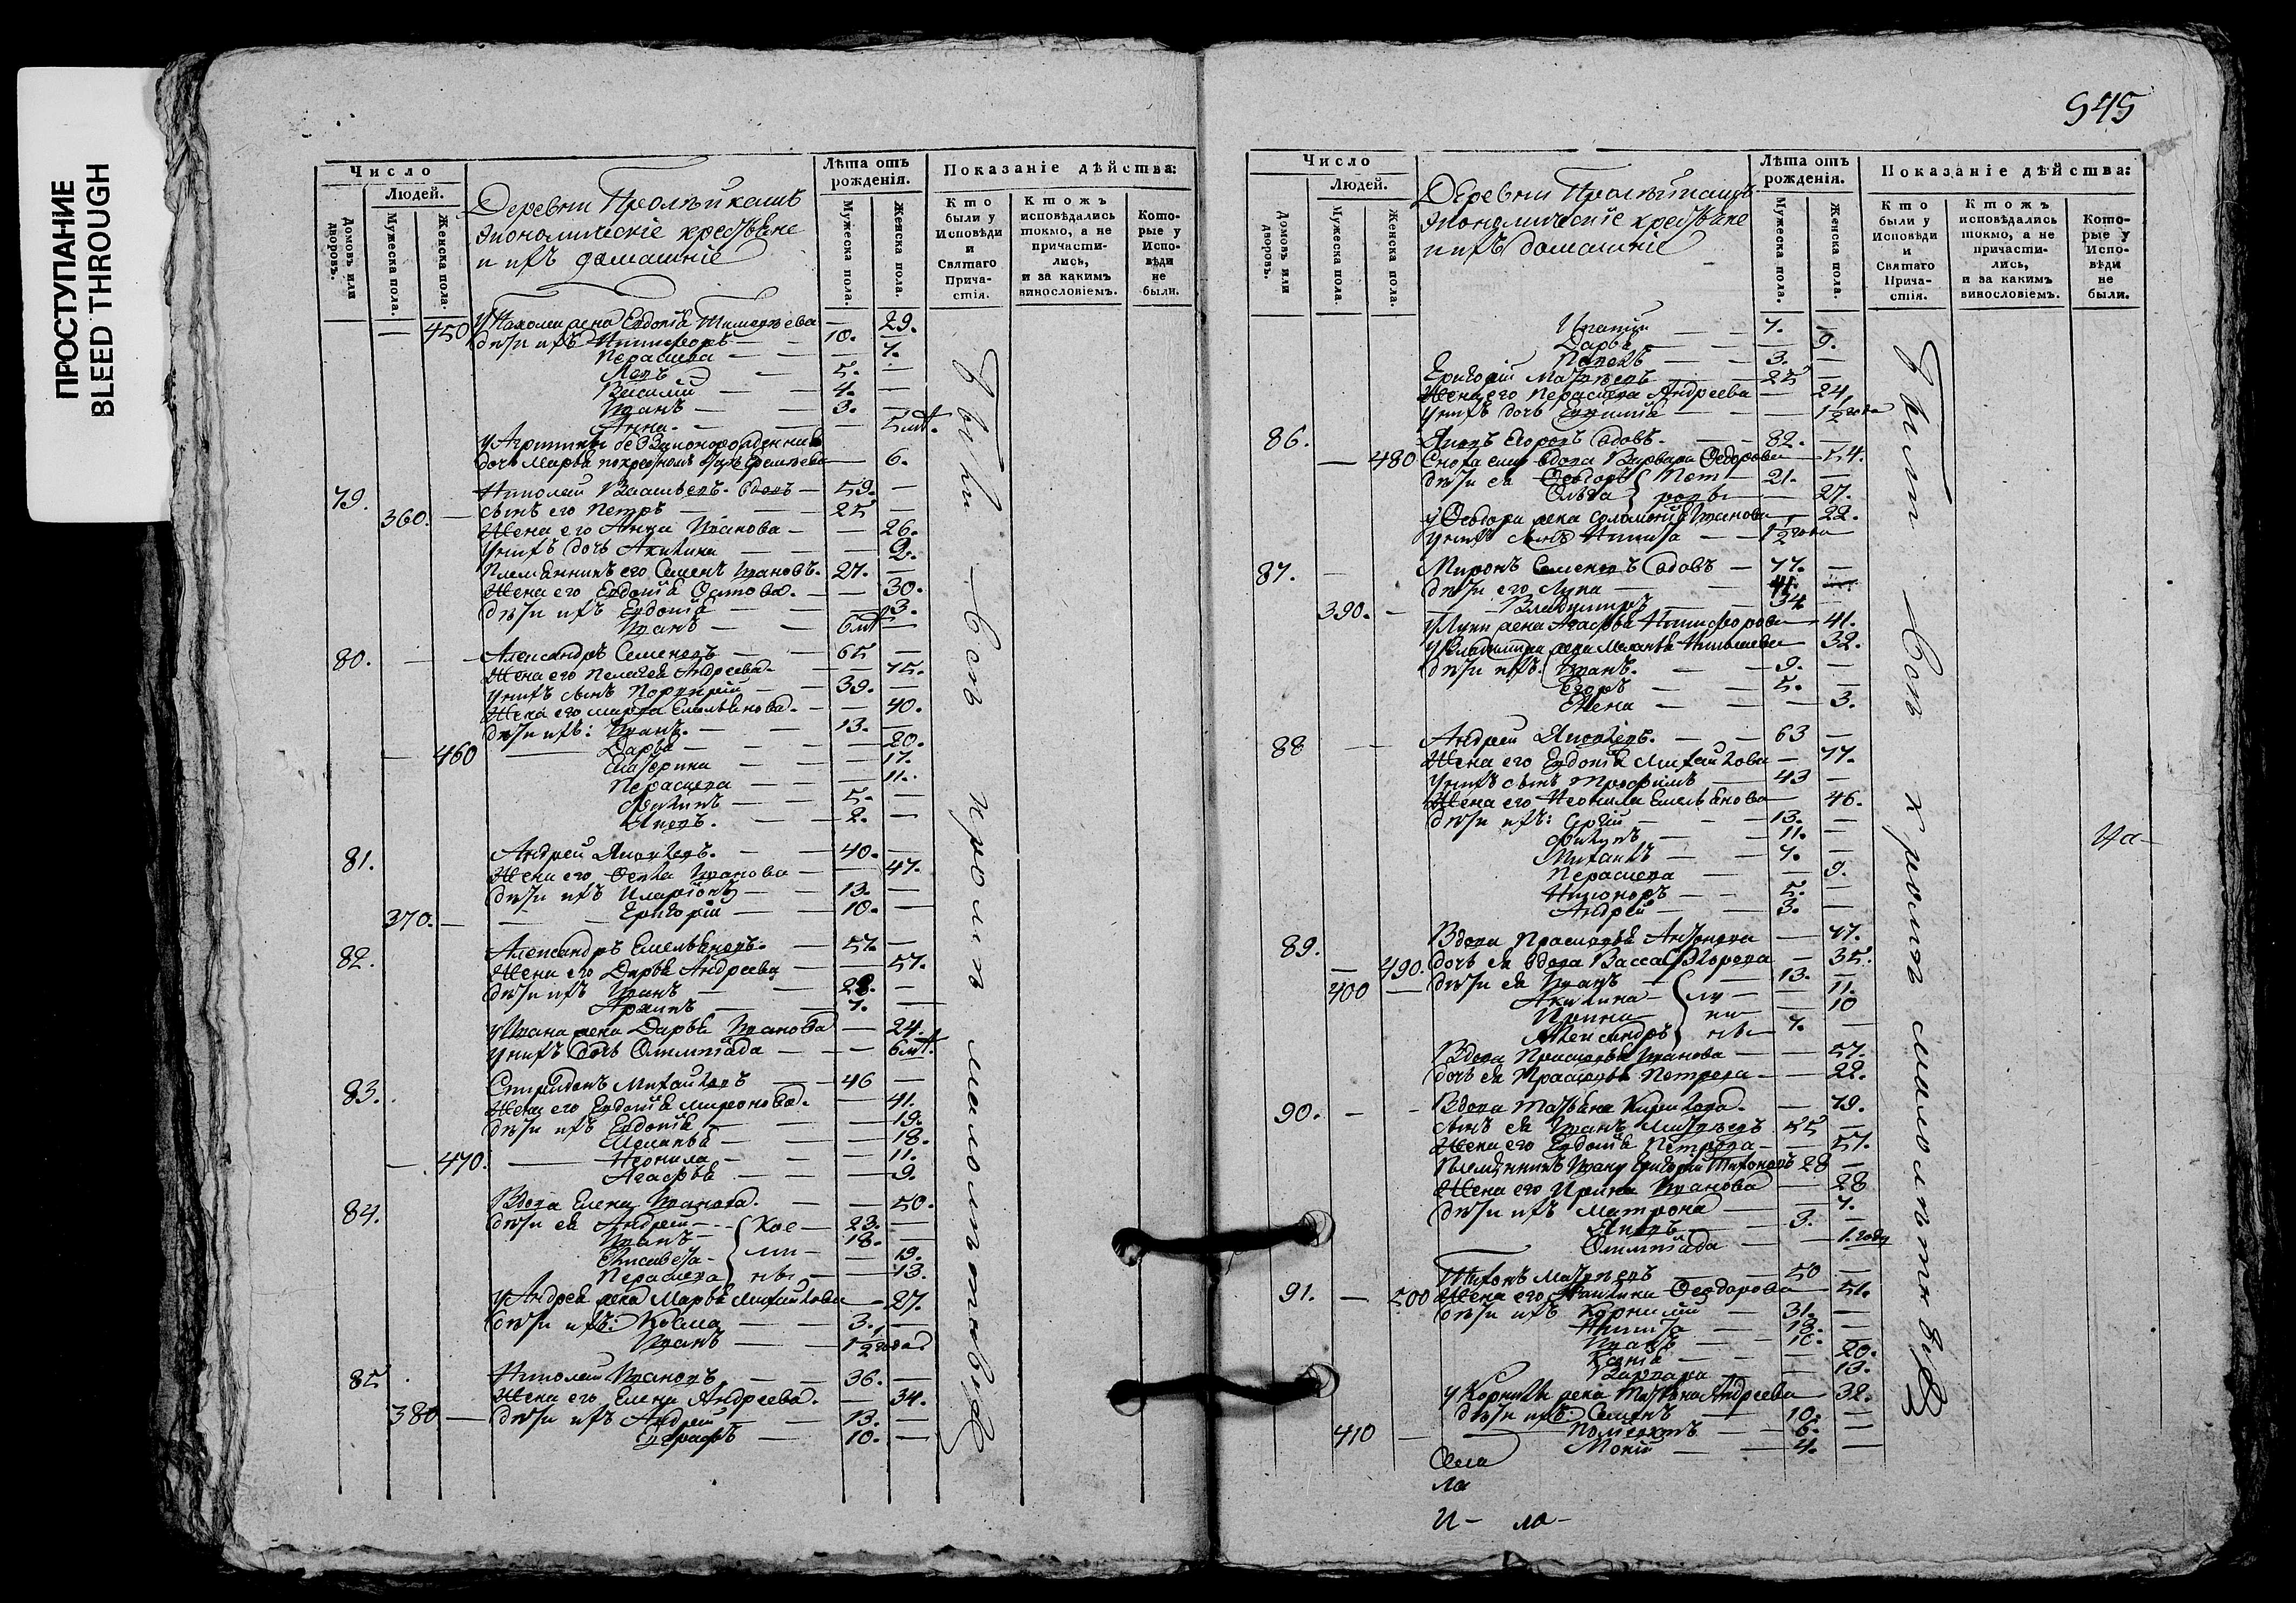 ПРОСТУПАНИЕ
BLEED THROUGH
Число
Людей.
Домовъ или дворовъ.
Мужеска пола.
Женска пола.
Деревни
экономическіе крестьяне
и ихъ домашніе
Лѣта отъ рожденія.
Мужеска пола.
Женска пола.
Показаніе дѣйства:
Кто были у Исповѣди и Святаго Прича-стія.
Ктожъ исповѣдались токмо, а не причасти-лись, и за какимъ винословіемъ.
Кото-рые у Испо-вѣди не были.
— 450 жена Евдокія — 29.
дѣти ихъ Никифоръ — 10. —
Параскева — — 7.
5. —
Василій — 4. —
Иванъ — 3. —
Анна — — 5
дочь Марѳа — 6.
79. Николай Васильевъ вдовъ — 59. —
360. — сынъ его Петръ — 25 —
Жена его Анна Иванова — — 26.
у нихъ дочь Акилина — — 2.
Племянникъ его Семенъ Ивановъ. 27. —
Жена его Евдокія Осипова. — — 30.
дѣти ихъ Евдокія — — 3.
Иванъ — 6 —
80. — — Александръ Семеновъ — 65 —
Жена его Пелагея Андреева — — 75.
у нихъ сынъ Порфирій — 39. —
Жена его Марѳа Емельянова. — — 40.
дѣти ихъ: Иванъ. — 13. —
— 460 Дарья — — 20.
Екатерина — — 17.
Параскева — — 11.
Филипъ — 5. —
Яковъ. — 2. —
81. Андрей Яковлевъ. — 40. —
Жена его Ѳекла Иванова — — 47.
дѣти ихъ Иларіонъ — 13. —
370. — Григорій — 10. —
82. Александръ Емельяновъ. — 57. —
Жена его Дарья Андреева — — 57.
дѣти ихъ Иванъ — 28. —
7. —
у Ивана жена Дарья Иванова — 24.
у нихъ дочь Олимпіада — — 6
83. Спиридонъ Михайловъ — 46 —
Жена его Евдокія Миронова. — 41.
дѣти ихъ Евдокія — — 19.
Меланья — — 18.
— 470. Неонила — — 11.
Агафья — — 9.
84. Вдова Елена Иванова. — — 50.
дѣти ея Андрей — 23. —
Иванъ — 18. —
Елисавета — — 19.
Параскева — — 13.
у Андрея жена Марья Михайлова — 27.
дѣти ихъ: Козма — 3. —
Иванъ — 1½ года
85 Николай Ивановъ. — 36. —
Жена его Елена Андреева. — 34.
380 — дѣти ихъ Андрей — 13. —
Евграфъ — 10. —
545
Число
Людей.
Домовъ или дворовъ.
Мужеска пола.
Женска пола.
Деревни
экономическіе крестьяне
и ихъ домашніе
Лѣта отъ рожденія.
Мужеска пола.
Женска пола.
Показаніе дѣйства:
Кто были у Исповѣди и Святаго Прича-стія.
Ктожъ исповѣдались токмо, а не причасти-лись, и за какимъ винословіемъ.
Кото-рые у Испо-вѣди не были.
Игнатій — 7. —
Дарья — — 9.
3. —
Григорій Матвѣевъ — 25 —
Жена его Параскева Андреева — 24
у нихъ дочь — 1½ года
86. Яковъ Егоровъ вдовъ. — 82. —
— 480 Сноха вдова Варвара Ѳедорова — 54.
дѣти ея Ѳеодоръ — 21. —
Ольга — 27.
у Ѳеодора жена Соломонія Иванова — 22.
у нихъ сынъ Никита — 1½ года
87. — Миронъ Семеновъ вдовъ — 77. —
дѣти его Лука — 41.
390. — Владимиръ — 34 —
у Луки жена Агафья Никифорова — 41.
у Владимира жена Меланья Николаева — 32.
дѣти ихъ: Иванъ. — 9. —
Егоръ — 5. —
Елена — — 3.
88 — — Андрей Яковлевъ. — 63 —
Жена его Евдокія Михайлова — 77.
у нихъ сынъ Трофимъ — 43 —
Жена его Неонила Емельянова — 46.
дѣти ихъ: Сергій — 13. —
Филипъ — 11. —
Михаилъ — 7. —
Параскева — — 9.
Никоноръ — 5. —
Андрей — 3. —
89. Вдова Прасковья Антонова — 77.
— 490. дочь ея вдова Васса Егорова — 35.
400 — дѣти ея Иванъ — 13. —
Акилина — — 11.
Ирина — — 10
Александръ — 7. —
Вдова Прасковья Иванова — — 57.
дочь ея Прасковья Петрова — — 22.
90. — — Вдова Татьяна Кирилова. — 79.
сынъ ея Иванъ Матвѣевъ 55 —
Жена его Евдокія Петрова — — 57.
Племянникъ Ивану Григорій Тихоновъ 28 —
Жена его Ирина Иванова — 28
дѣти ихъ Матрона — — 7.
Яковъ — 3. —
Олимпіада — — 1. году
91. — Тихонъ Матвѣевъ — 50 —
500 Жена его Ѳеодорова — 51.
дѣти ихъ Корнилій — 31. —
Никита — 18. —
Иванъ — 10. —
Ксенія — — 20.
Варвара — — 13.
у Корнилія жена Татьяна Андреева — 32.
дѣти ихъ: Семенъ — 10. —
410 — 6. —
Мокій — 4. —